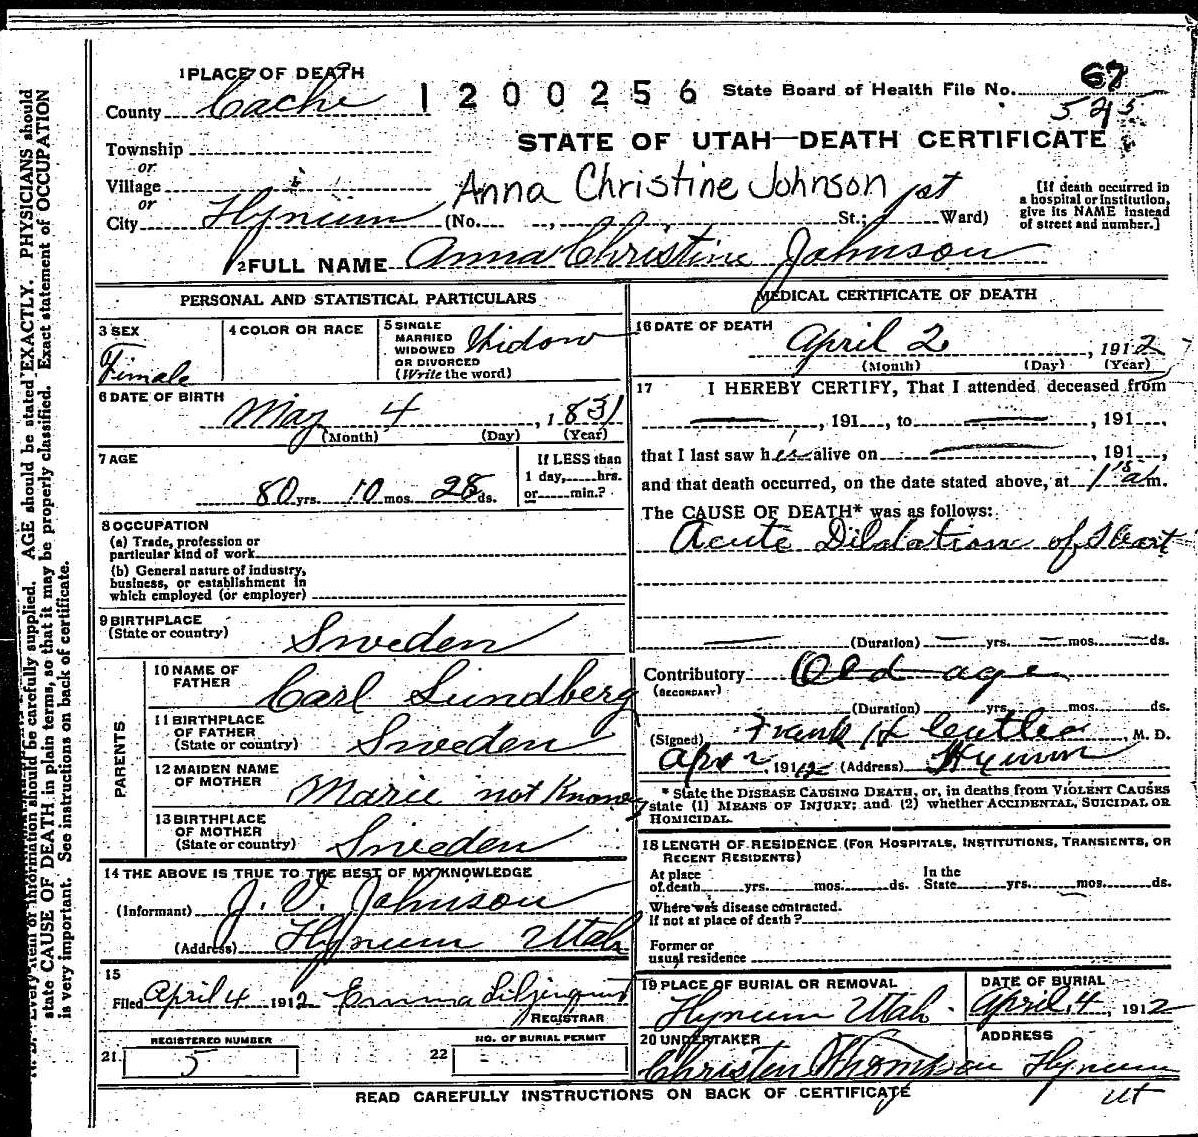 1 PLACE OF DEATH
County Cache
1200256
State Board of Health File No. 67
545
Township
or
Village
or
City Hyrum
STATE OF UTAH—DEATH CERTIFICATE
Anna Christine Johnson
(No. , St.; 1st Ward)
[If death occurred in a hospital or institution, give its NAME instead of street and number.]
2 FULL NAME Anna Christine Johnson
PERSONAL AND STATISTICAL PARTICULARS
3 SEX
Female
4 COLOR OR RACE
5 SINGLE
MARRIED
WIDOWED
OR DIVORCED
(Write the word)
Widow
6 DATE OF BIRTH
May 4, 1831
(Month) (Day) (Year)
7 AGE
80 yrs. 10 mos. 28 ds.
If LESS than
1 day, hrs.
or min.?
8 OCCUPATION
(a) Trade, profession or
particular kind of work
(b) General nature of industry,
business, or establishment in
which employed (or employer)
9 BIRTHPLACE
(State or country)
Sweden
PARENTS.
10 NAME OF
FATHER
Carl Lundberg
11 BIRTHPLACE
OF FATHER
(State or country)
Sweden
12 MAIDEN NAME
OF MOTHER
Marie not Known
13 BIRTHPLACE
OF MOTHER
(State or country)
Sweden
14 THE ABOVE IS TRUE TO THE BEST OF MY KNOWLEDGE
(Informant) J. V. Johnson
(Address) Hyrum Utah
15
Filed April 4 1912 Emma Liljenquist
REGISTRAR
REGISTERED NUMBER
21. 5
NO. OF BURIAL PERMIT
22
MEDICAL CERTIFICATE OF DEATH
16 DATE OF DEATH
April 2, 1912
(Month) (Day) (Year)
17 I HEREBY CERTIFY, That I attended deceased from
, 191 , to , 191 ,
that I last saw her alive on , 191 ,
and that death occurred, on the date stated above, at 1 15 a m.
The CAUSE OF DEATH* was as follows:
Acute Dilalation of Heart
(Duration) yrs. mos. ds.
Contributory Old age
(SECONDARY)
(Duration) yrs. mos. ds.
(Signed) Frank H Cutler, M. D.
Apr 2, 1912 (Address) Hyrum
* State the DISEASE CAUSING DEATH, or, in deaths from VIOLENT CAUSES
state (1) MEANS OF INJURY; and (2) whether ACCIDENTAL, SUICIDAL OR
HOMICIDAL.
18 LENGTH OF RESIDENCE (FOR HOSPITALS, INSTITUTIONS, TRANSIENTS, OR
RECENT RESIDENTS)
At place
of death yrs. mos. ds.
In the
State yrs. mos. ds.
Where was disease contracted.
If not at place of death?
Former or
usual residence
19 PLACE OF BURIAL OR REMOVAL
Hyrum Utah
DATE OF BURIAL
April 4, 1912
20 UNDERTAKER
Christen Thompson
ADDRESS
Hyrum
Ut
READ CAREFULLY INSTRUCTIONS ON BACK OF CERTIFICATE
Every item of information should be carefully supplied. AGE should be stated EXACTLY. PHYSICIANS should
state CAUSE OF DEATH in plain terms, so that it may be properly classified. Exact statement of OCCUPATION
is very important. See instructions on back of certificate.